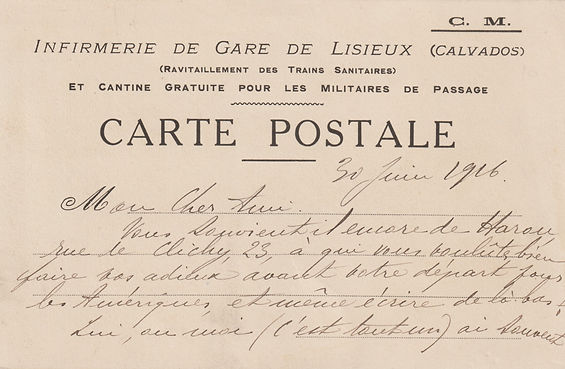 C. M.
INFIRMERIE DE GARE DE LISIEUX (CALVADOS)
(RAVITAILLEMENT DES TRAINS SANITAIRES)
ET CANTINE GRATUITE POUR LES MILITAIRES DE PASSAGE
CARTE POSTALE
30 Juin 1916.
Mon Cher Ami.
Vous souvient il encore de Harou,
rue de Clichy, 23, à qui vous voulûtes bien
faire vos adieux avant votre départ pour
les Amériques, et même écrire de là bas !
Lui, ou moi (c'est tout un) ai souvent